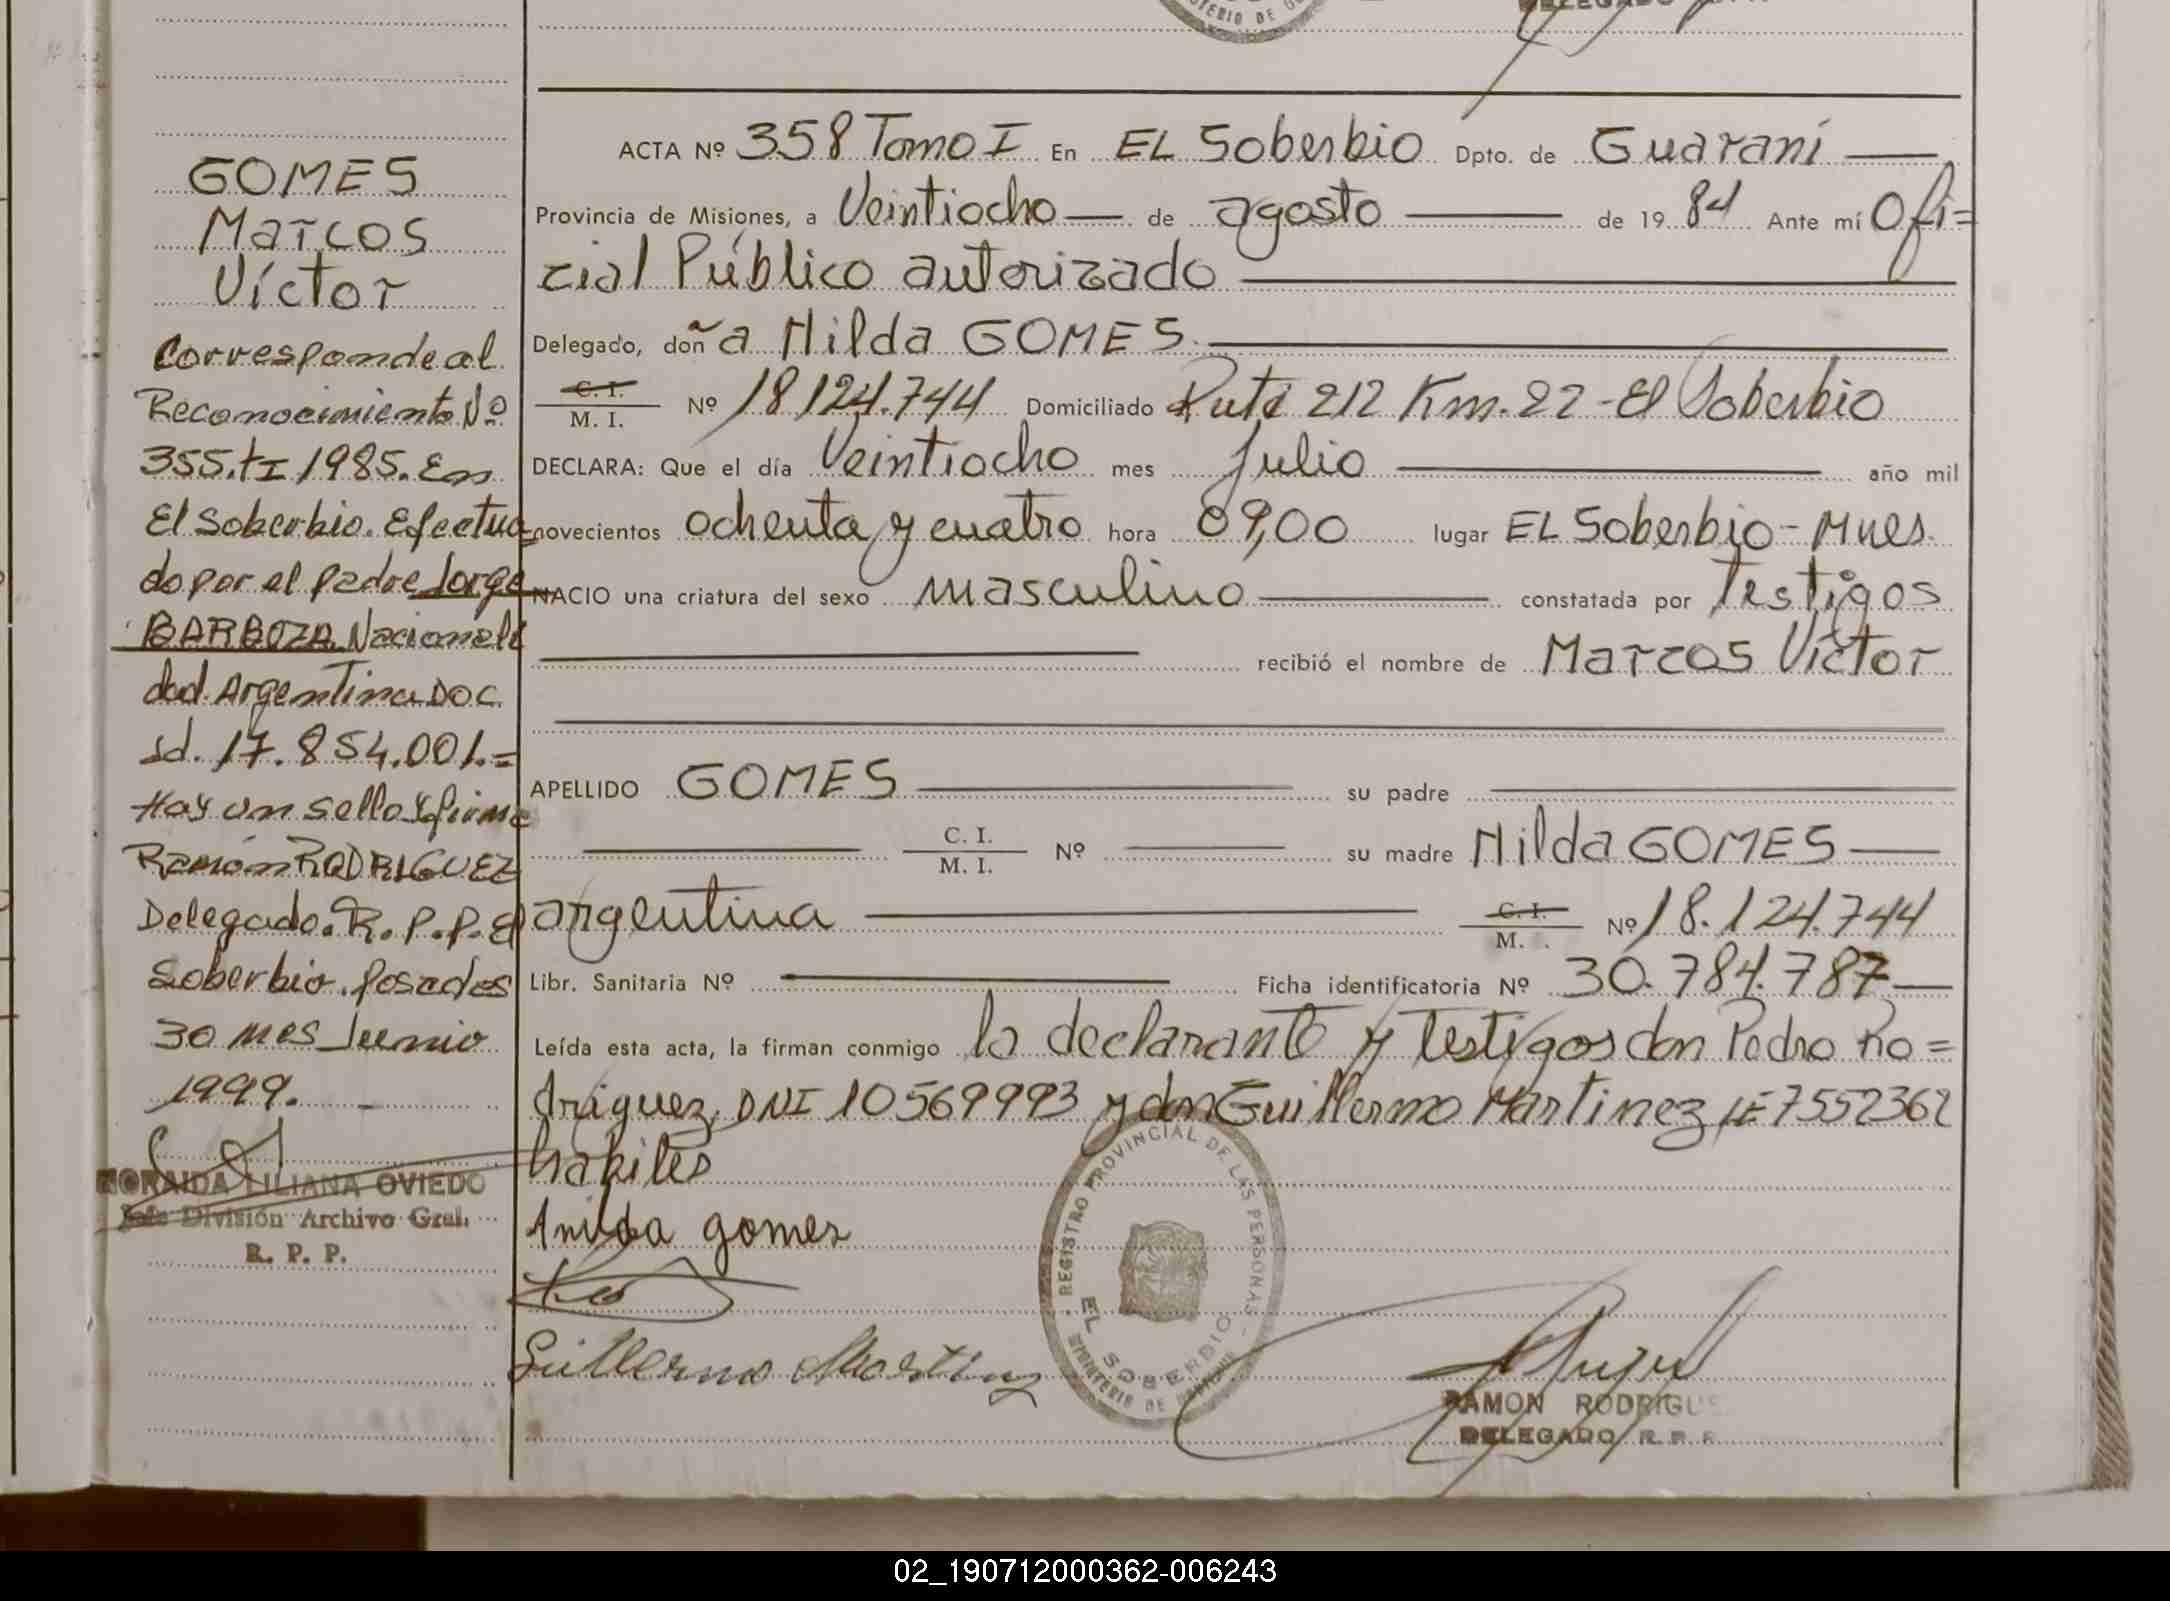 MINISTERIO DE
DELEGADO
GOMES
Marcos
Víctor
Corresponde al
Reconocimiento Nº
355.tI 1985. En
El Soberbio. Efectua=
do por el padre Jorge
BARBOZA Nacionali
dad. Argentina DOC.
Id. 17.854.001.=
Hay un sello y firma
Ramón RODRIGUEZ
Delegado. R.P.P. El
Soberbio. Posadas
30 mes Junio
1999. -
ZORAIDA LILIANA OVIEDO
Jefe División Archivo Gral.
R. P. P.
ACTA Nº 358 Tomo I En EL Soberbio Dpto. de Guaraní
Provincia de Misiones, a Veintiocho de agosto de 19 84 Ante mí Ofi=
cial Público autorizado
Delegado, doña Hilda GOMES
C. I.
M. I. Nº 18.124.744 Domiciliado Ruta 212 Km. 22 - El Soberbio
DECLARA: Que el día Veintiocho mes Julio año mil
novecientos ochenta y cuatro hora 09,00 lugar EL Soberbio - Mnes.
NACIO una criatura del sexo masculino constatada por Testigos
recibió el nombre de Marcos Víctor
APELLIDO GOMES su padre
C. I.
M. I. Nº su madre Hilda GOMES
argentina C. I.
M. Nº 18.124.744
Libr. Sanitaria Nº Ficha identificatoria Nº 30.784.787
Leída esta acta, la firman conmigo la declarante y testigos don Pedro Ro=
dríguez, DNI 10569993 y don Guillermo Martinez LE 7552362
habiles
Anilda gomes
Guillermo Martinz
REGISTRO PROVINCIAL DE LAS PERSONAS
EL SOBERBIO
MINISTERIO DE
RAMON RODRIGU
DELEGADO R. P. P.
02_190712000362-006243